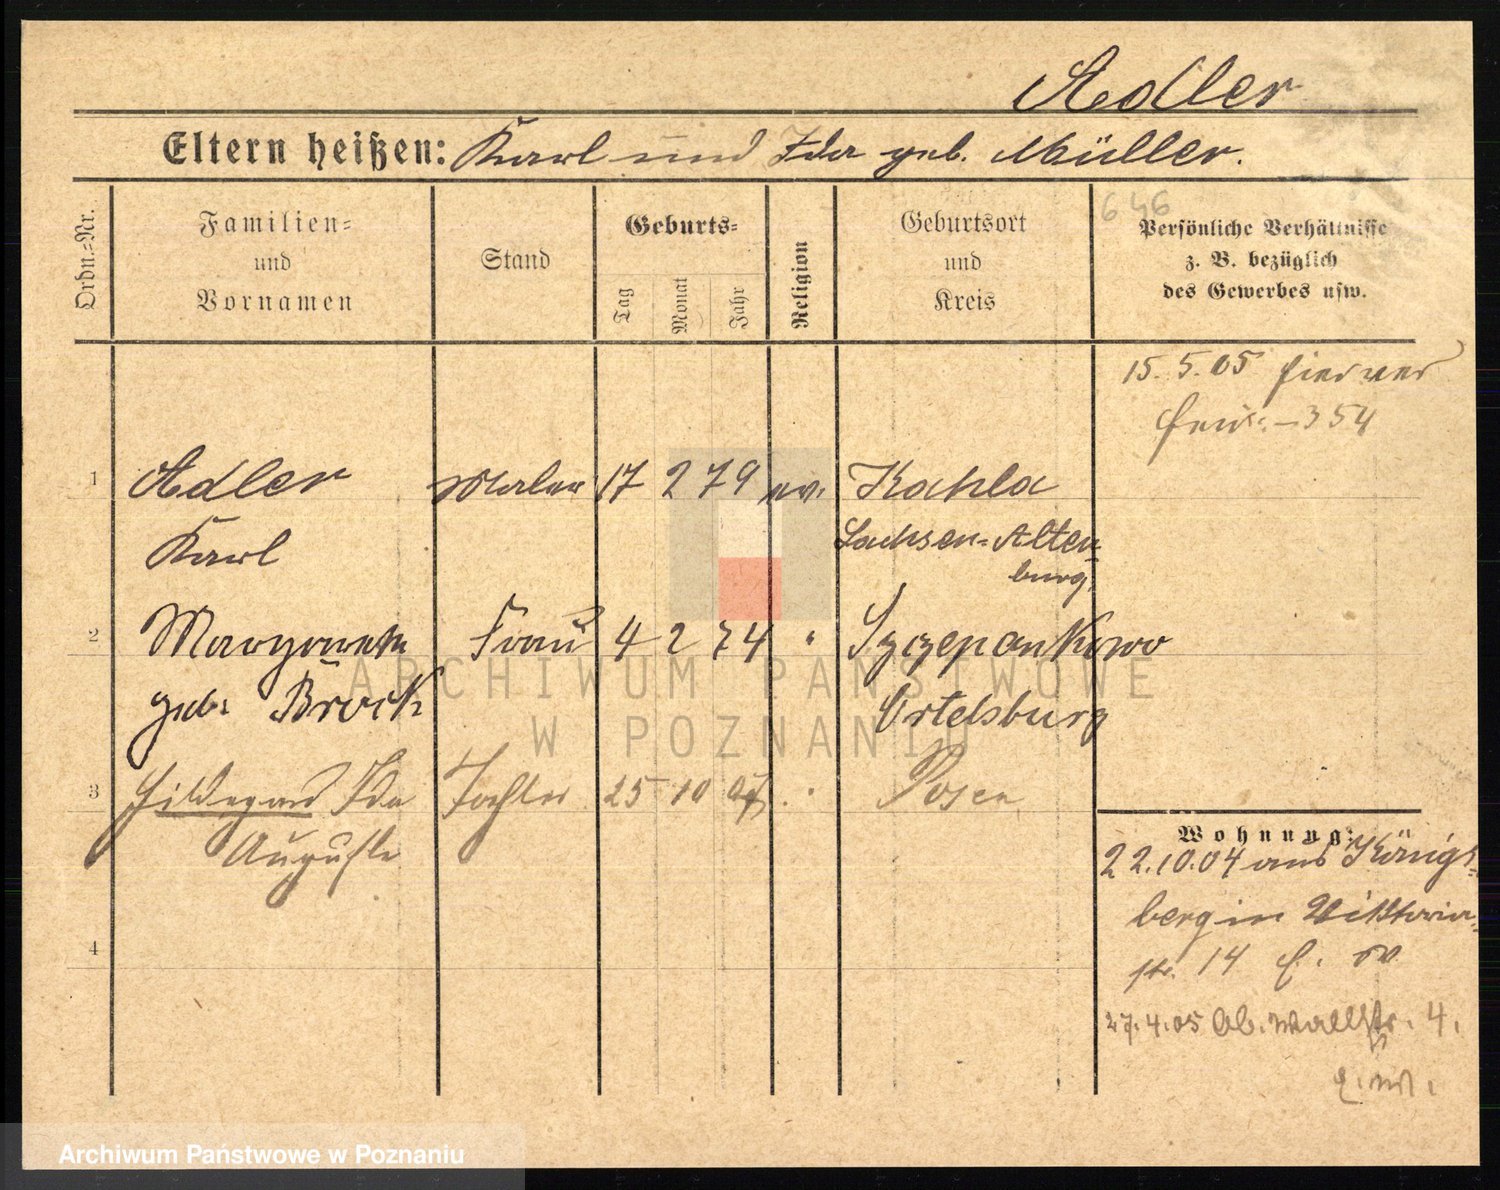 Adler
Eltern heißen: Karl und Ida geb. Müller.
Ordn.=Nr.
Familien= und Vornamen
Stand
Geburts=
Tag
Monat
Jahr
Religion
Geburtsort und Kreis
646
Persönliche Verhältnisse
z. B. bezüglich
des Gewerbes usw.
15. 5. 05
354
1 Adler Maler 17 2 79 ev. Kahla
Karl Sachsen=Alten=
burg.
2 Margarete Frau 4 2 74 " Szczepankowo
geb. Brock Ortelsburg
3 Hildegard Ida Tochter 25 10 . " Posen
Auguste
4
Wohnung:
22.10.04 aus Königs=
berg in Viktoria=
str. 14
27.4.05 Ob. Wallstr. 4.
ARCHIWUM PAŃSTWOWE
W POZNANIU
Archiwum Państwowe w Poznaniu